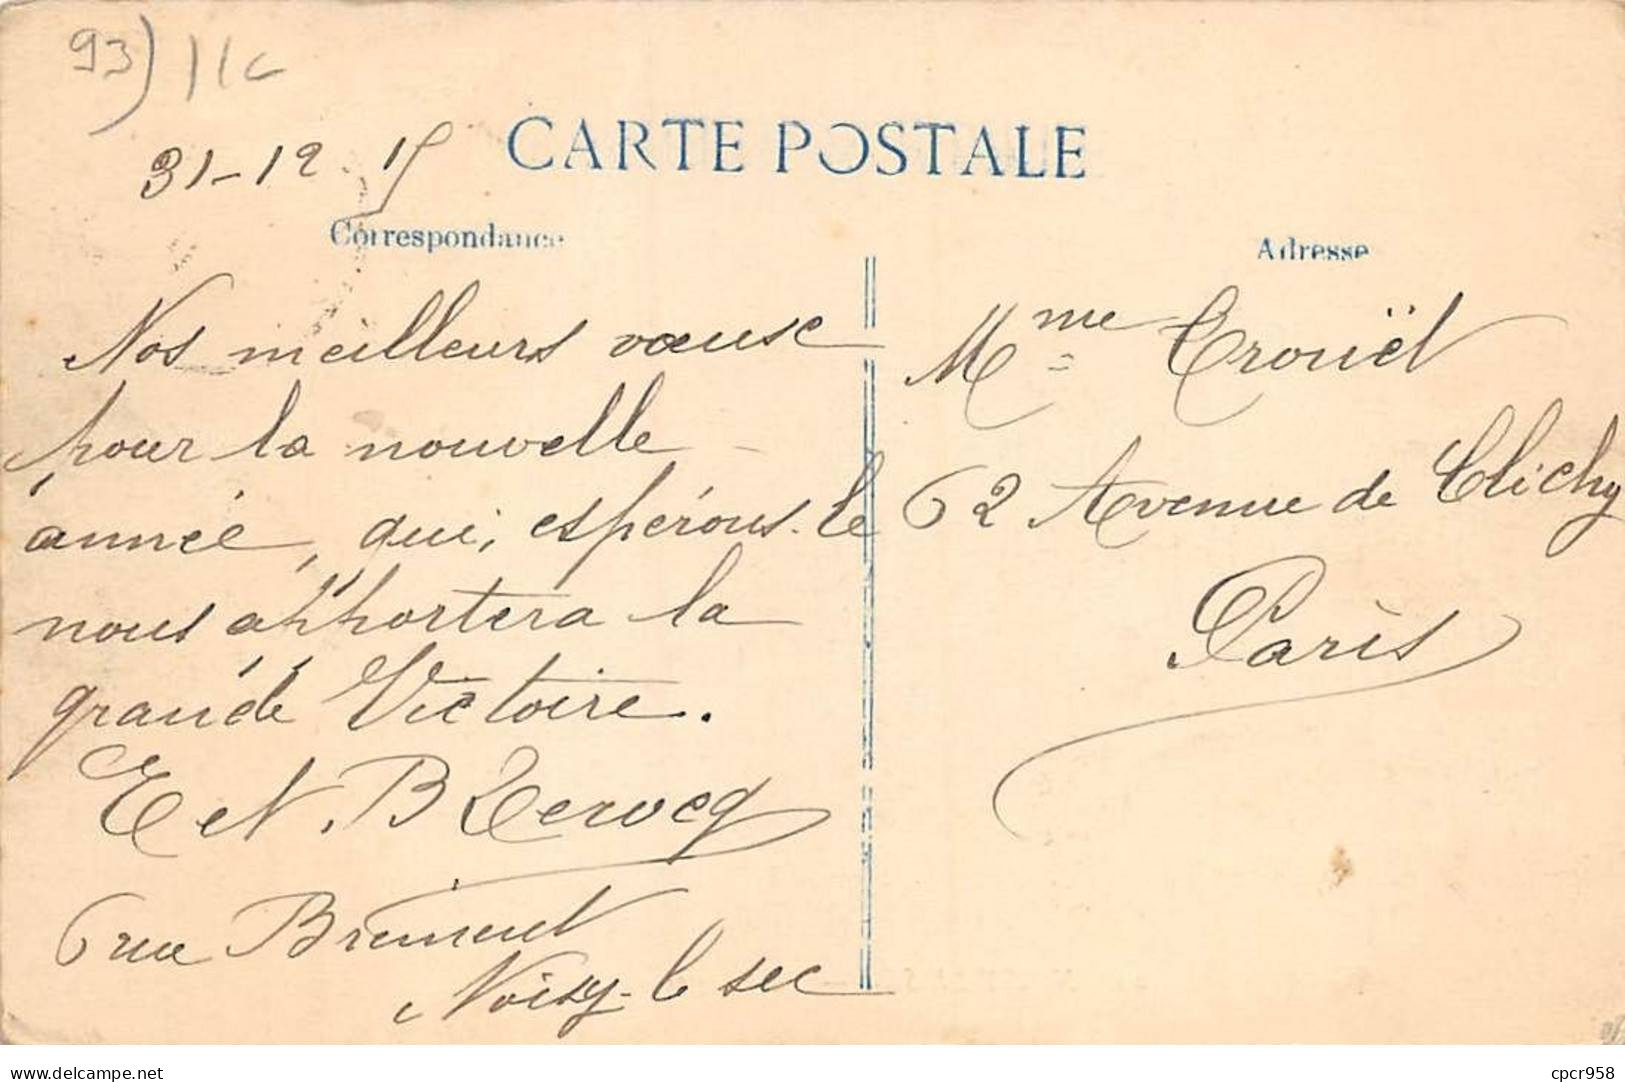 93) 11c
CARTE POSTALE
31-12 15
Correspondance
Nos meilleurs vœuse
pour la nouvelle
année, qui, espérons-le
nous apportera la
grande Victoire.
E et B
6 rue Brément
Noisy-le sec
Adresse
Mme Trouël
62 Avenue de Clichy
Paris
delcampe.net
cpcr958